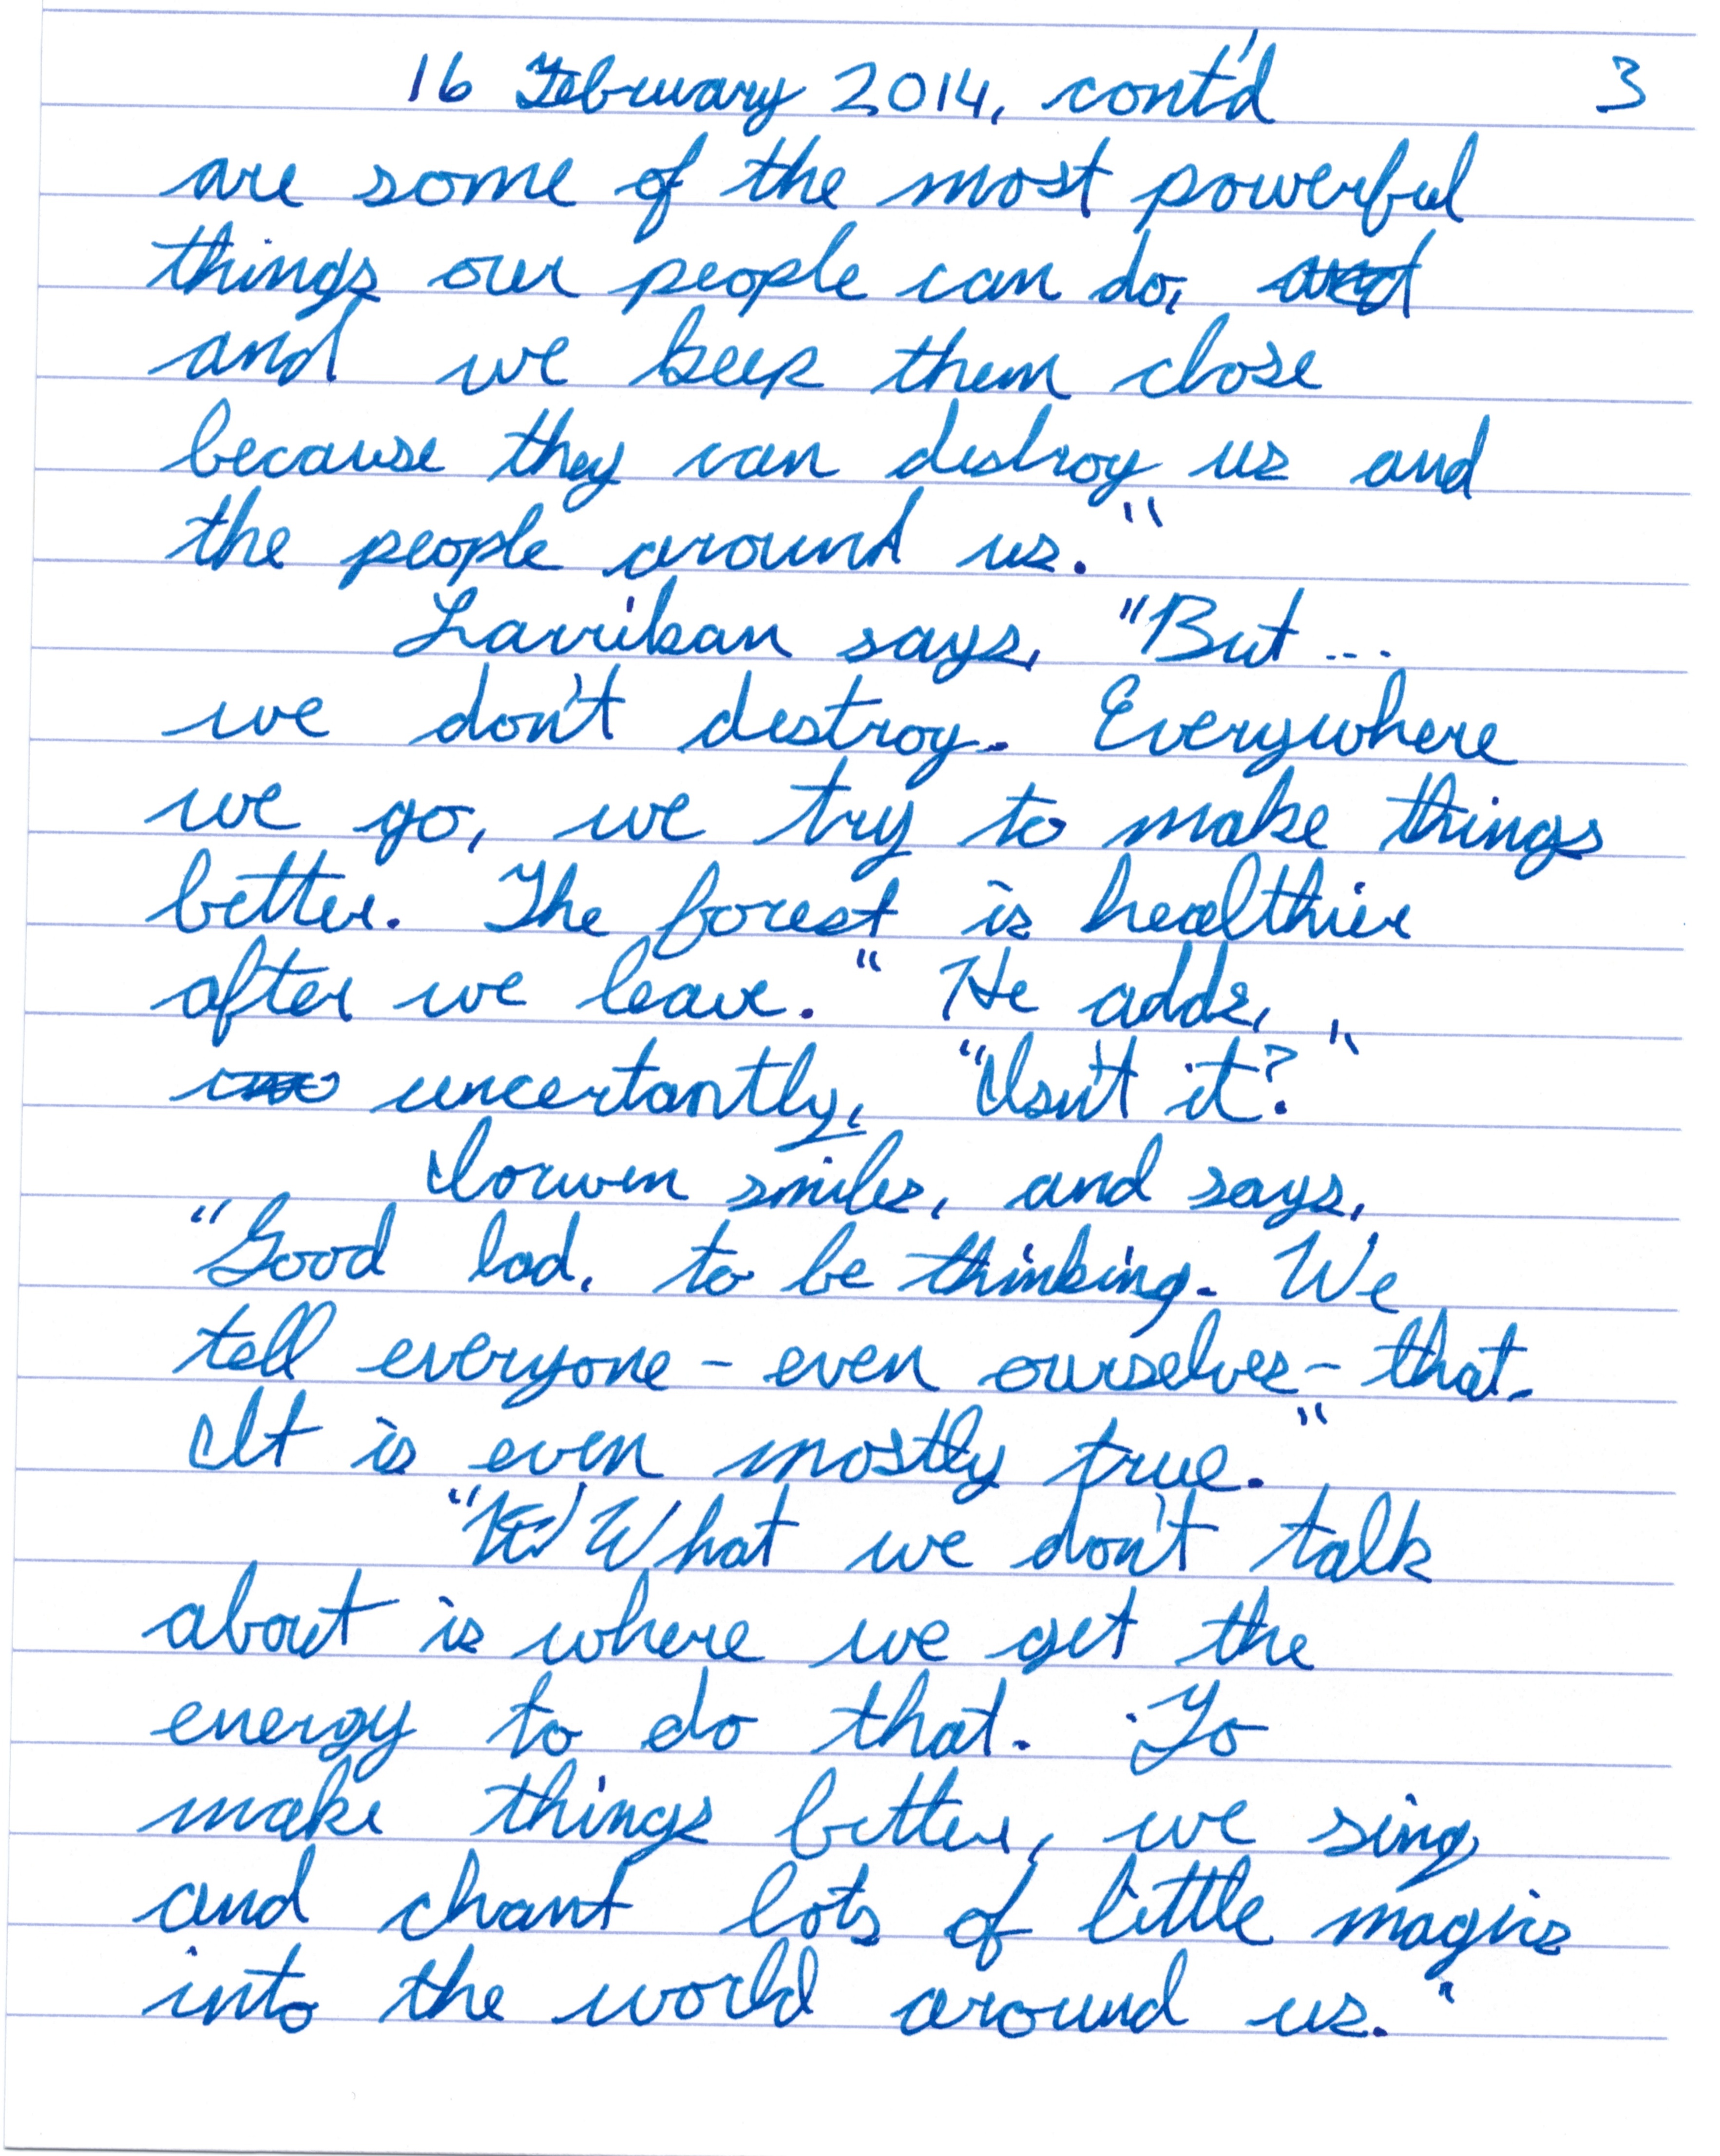 16 February 2014, cont'd 3
are some of the most powerful
things our people can do, and
and we keep them close
because they can destroy us and
the people around us."
Lavrikan says, "But ...
we don't destroy. Everywhere
we go, we try to make things
better. The forest is healthier
after we leave." He adds,
uncertantly, "Isn't it?"
Iorwen smiles, and says,
"Good lad. to be thinking. We
tell everyone - even ourselves - that.
It is even mostly true."
"What we don't talk
about is where we get the
energy to do that. To
make things better, we sing
and chant lots of little magics
into the world around us."